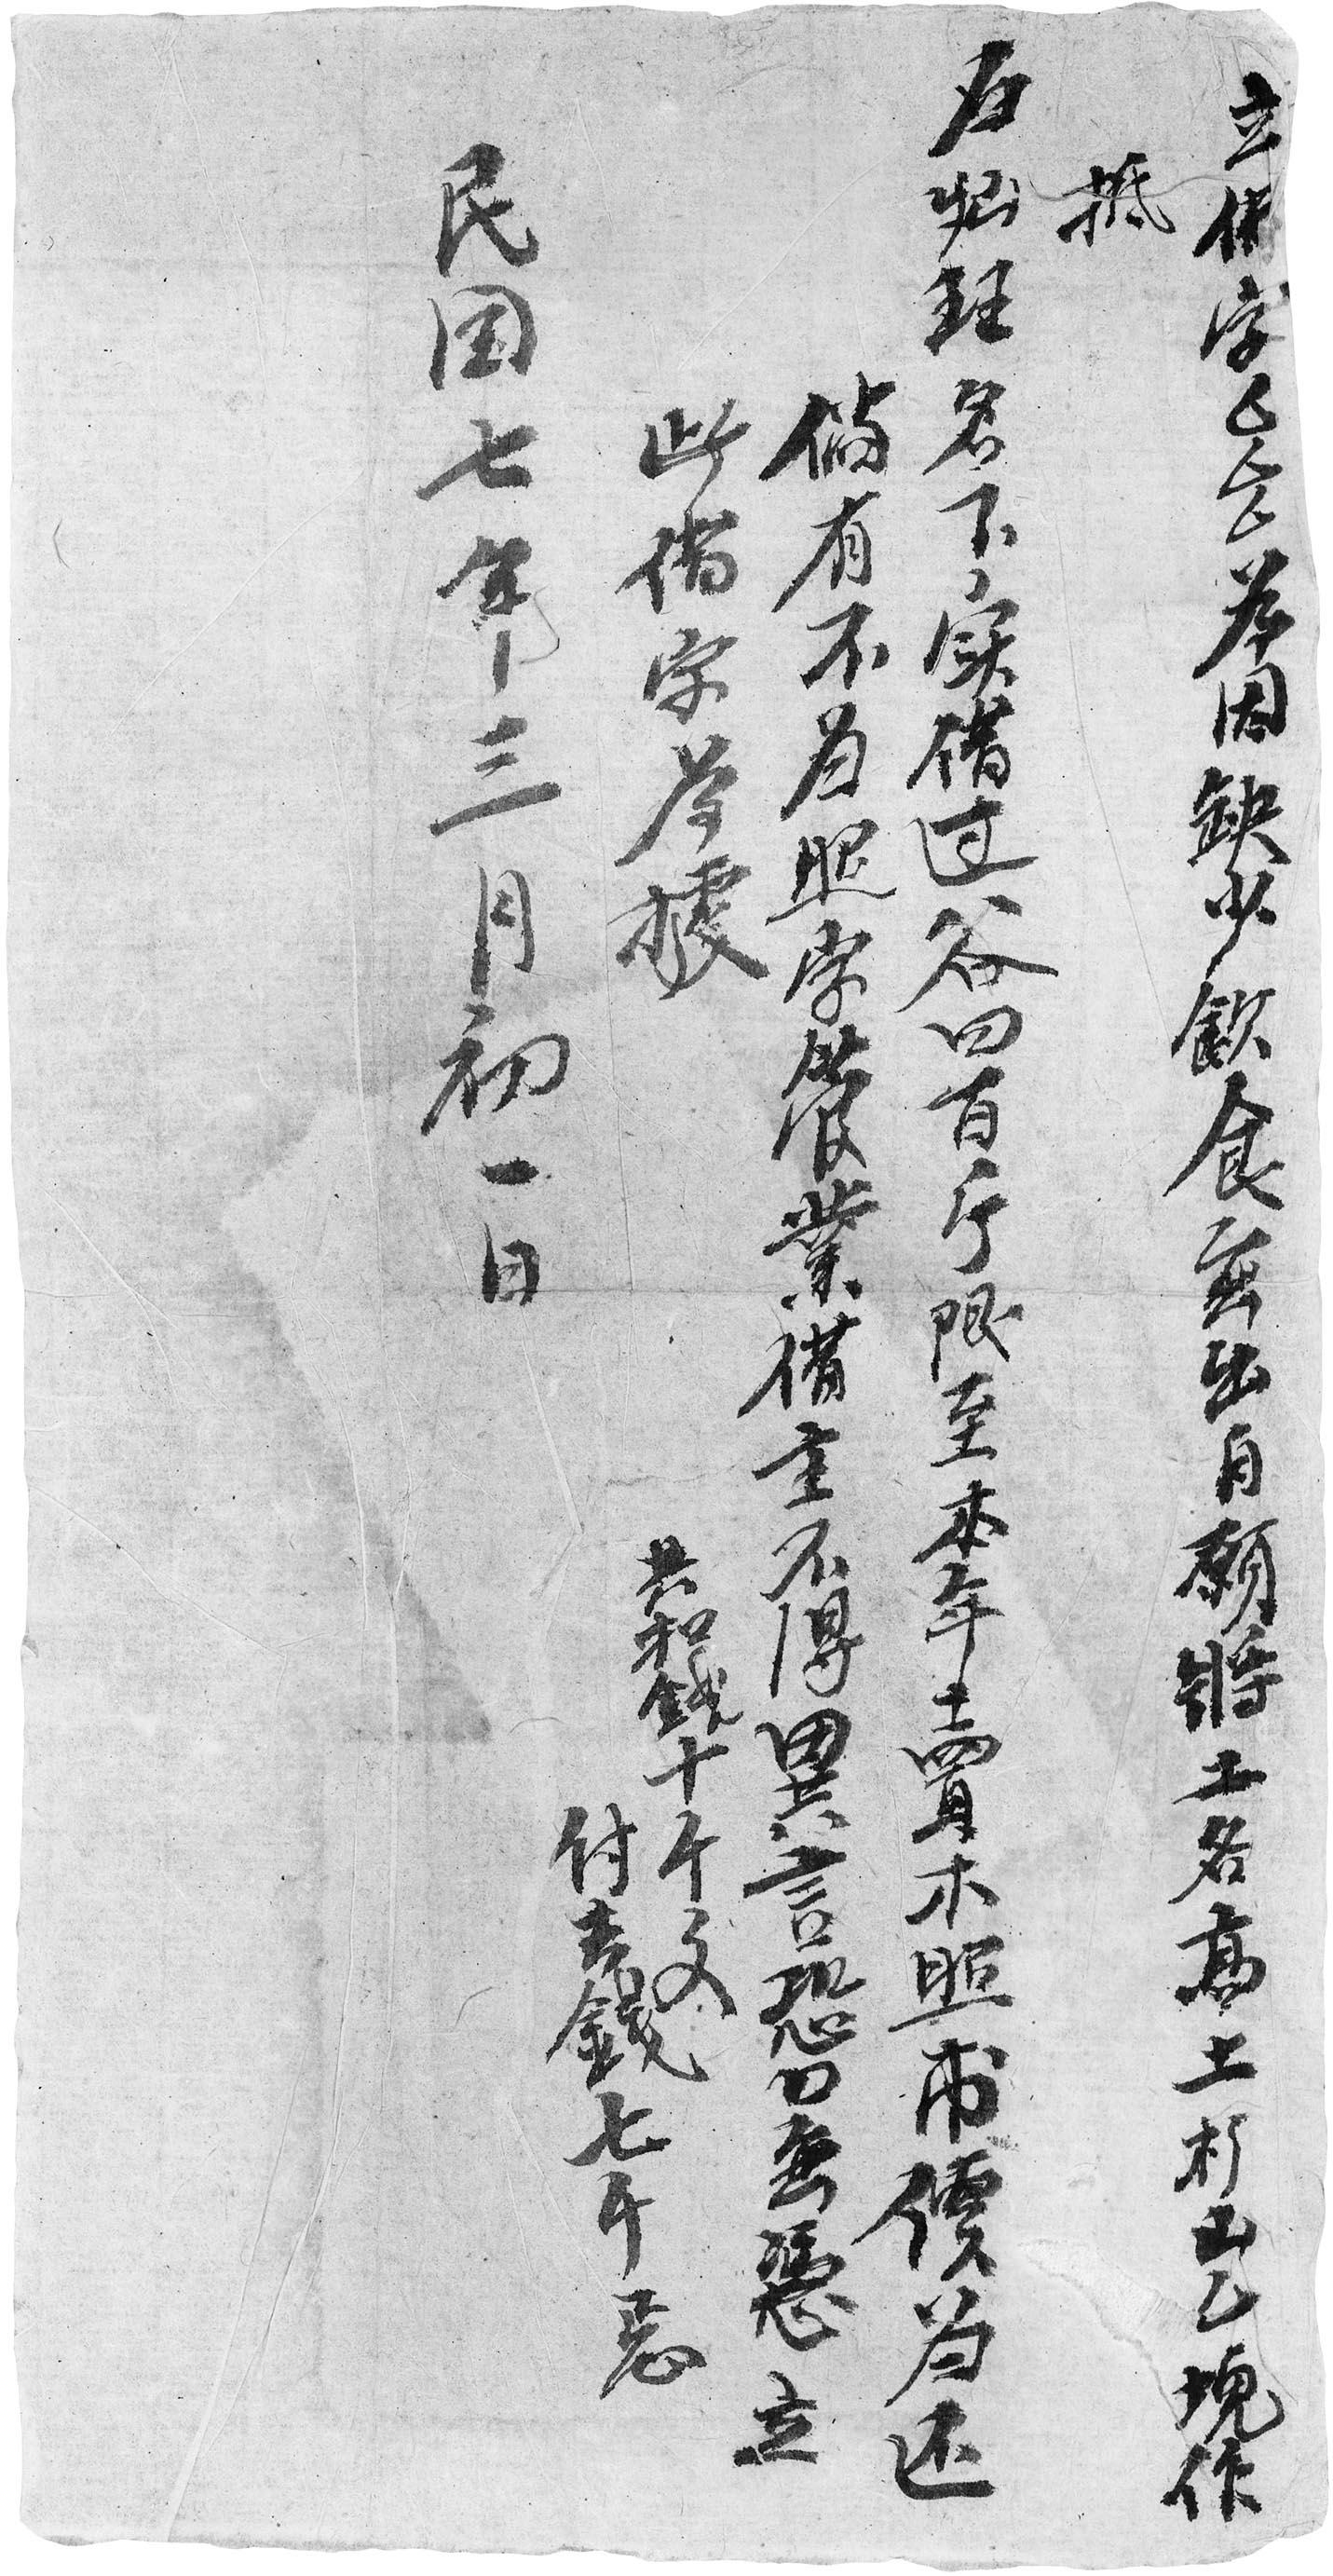 立借字乙乙為因缺少飲食無出自願將土名高土杉山乙塊作
抵
石 名下實借过谷四百斤限至本年賣木照市價为还
倘有不为照字管業借主不得異言恐口無憑立
此借字為據
共和錢十千文
付去錢七千
民国七年三月初一日